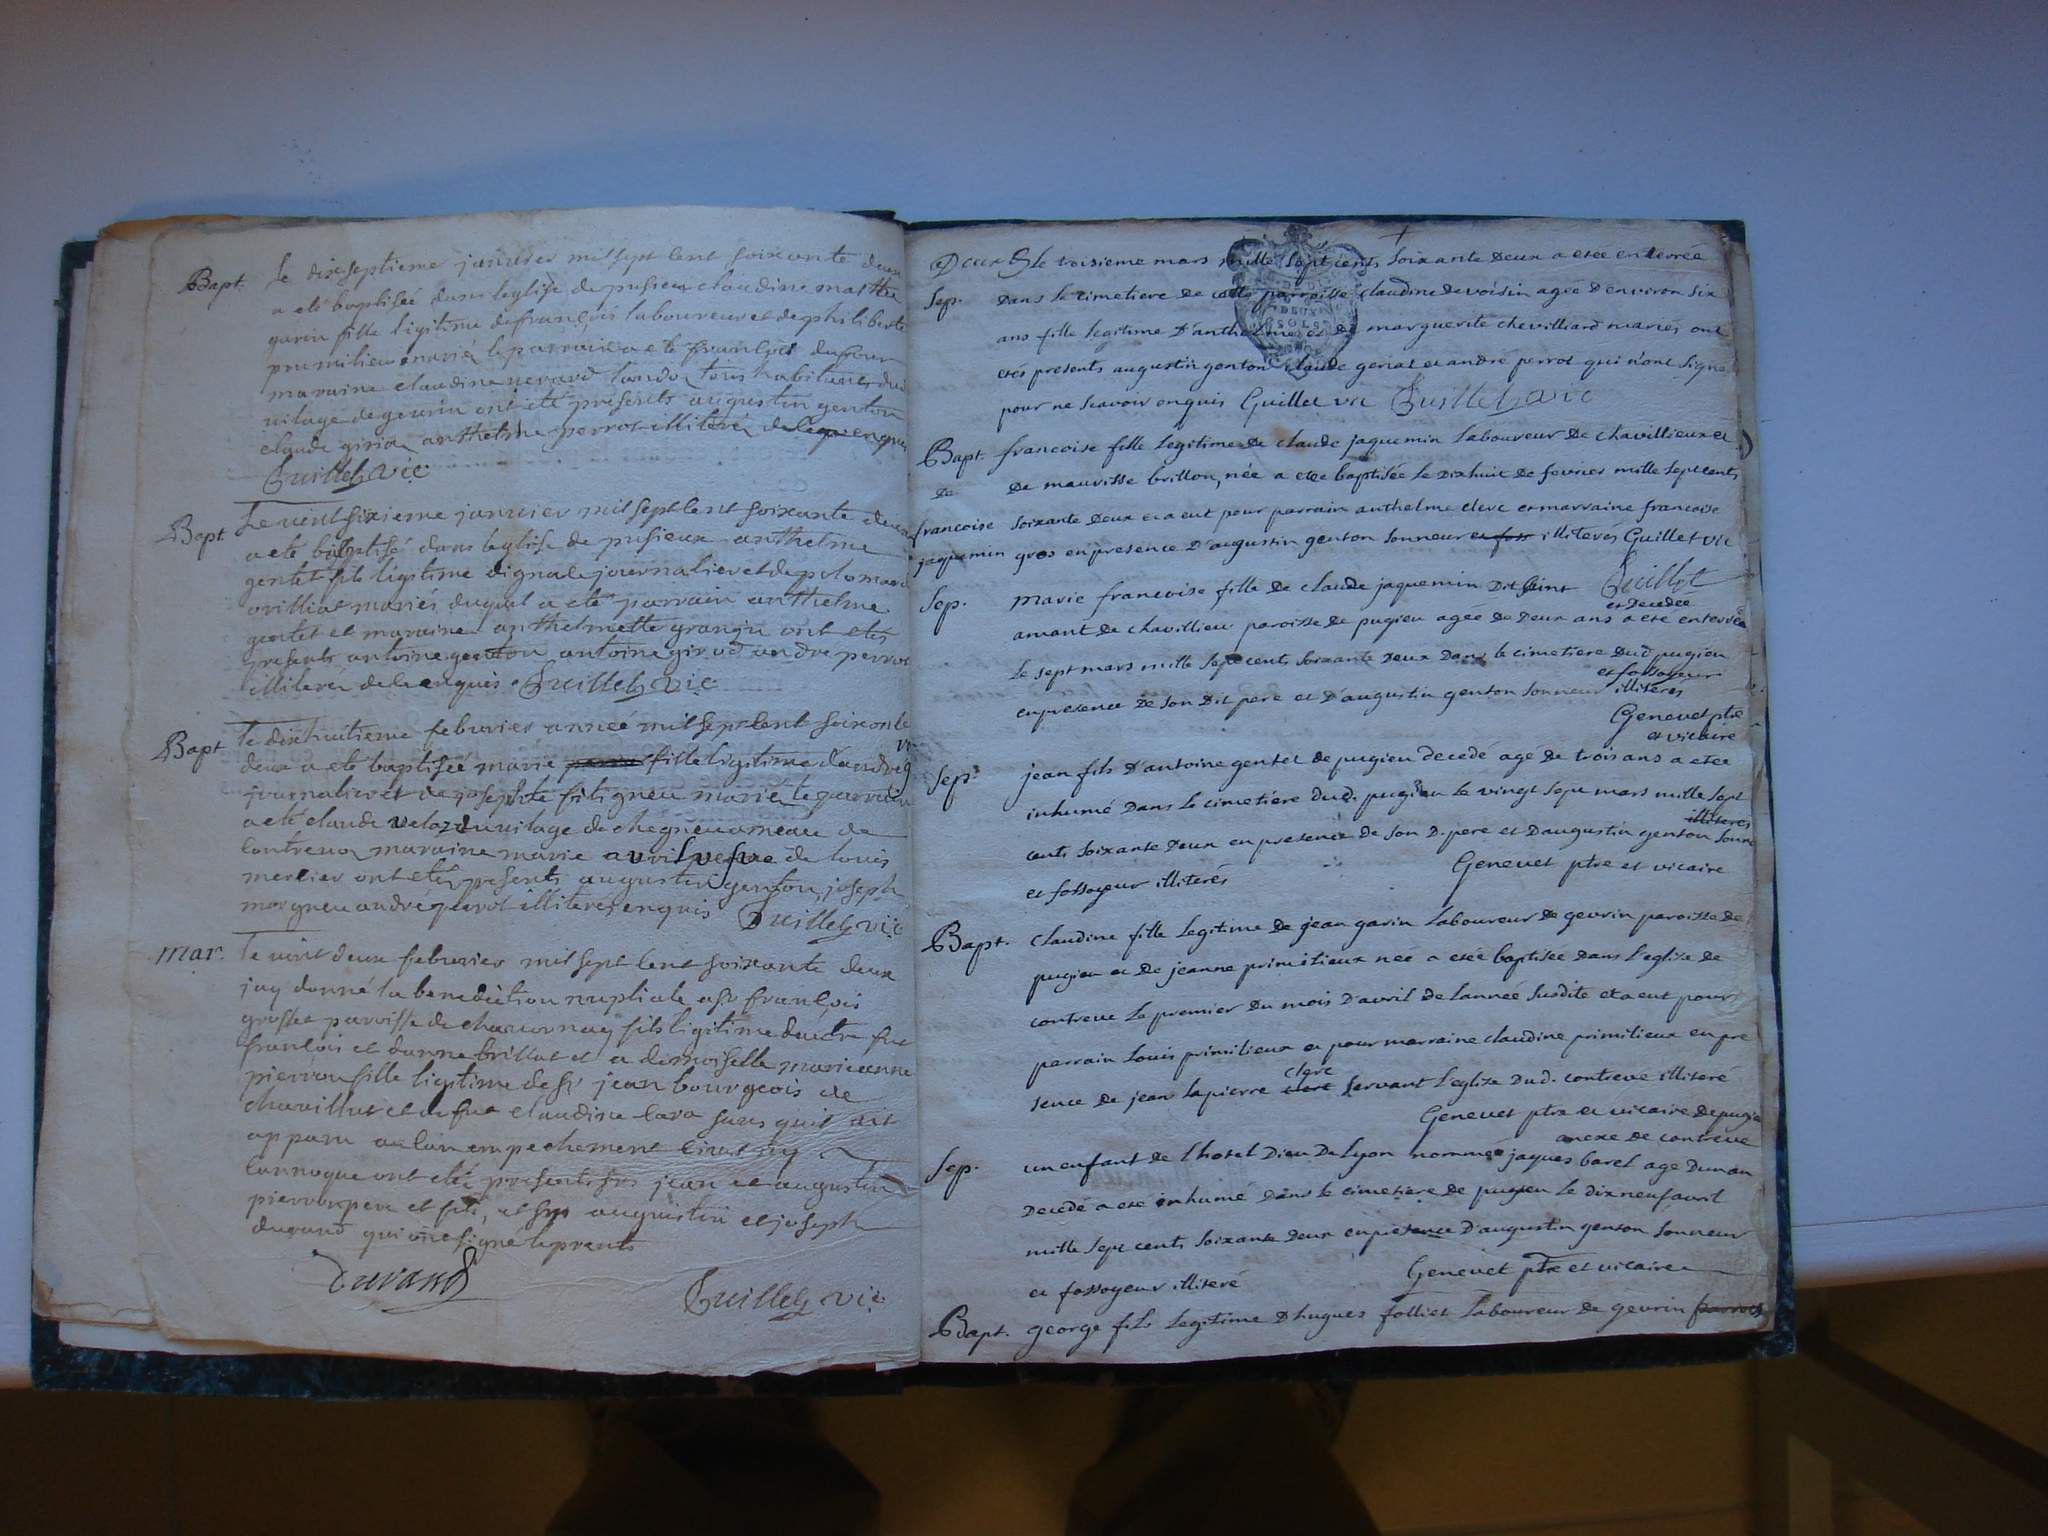 Bapt. Le dix septieme janvier mil sept cent soixante deux
a eté baptisée dans leglise de pusieu claudine marthe
garin fille legitime de françois laboureur et de philiberte
premilieu mariés le parrain a eté françois dufour
maraine claudine nerard landoz tous habitants du
vilage de gevrin ont eté presents augustin genton
claude anthelme perrot illiterés de ce enquis
Guillet vic
Bapt Le vint sixieme janvier mil sept cent soixante deux
a eté baptisé dans leglise de pusieux anthelme
gentet fils legitime journalier et de
mariés duquel a eté parrain anthelme
gentet et maraine anthelmette grangu ont etés
presents antoine genton antoine girod andre perrot
illiterés de ce enquis Guillet vic
Bapt Le dixhuitieme febvrier année mil sept cent soixante
deux a eté baptisée marie fille legitime
journalier et de josephte filigneu mariés le parrain
a eté claude velaz du vilage de chegneu ameau de
contrevoz maraine marie avril vefve de louis
mercier ont etés presents augustin genton, joseph
morgneu andré perrot illiterés enquis Guillet vic
mar. Le vint deux febvrier mil sept cent soixante deux
jay donné la benediction nuptiale a sr françois
grosset paroisse de chavornay fils legitime dautre feu
françois et danne brillat et a demoiselle marieanne
pierron fille legitime de sr jean bourgeois de
chavillieu et de fue claudine cara sans quil ait
apparu aucun empechement civil ny
cannoque ont etés presents srs jean et augustin
pierron pere et fils, et srs augustin et joseph
durand qui ont signé le presents
Durand
Guillet vic
Deux S Le troisieme mars mille sept cents soixante Deux a etee enterrée
Sep. Dans le cimetiere de cette parroisse claudine devoisin agée D'environ six
ans fille legitime D'anthelme et de marguerite chevilliard mariés ont
etés presents augustin genton claude genat et andré perrot qui n'ont signé
pour ne scavoir enquis Guillet vic Guillet vic
Bapt. francoise fille legitime de claude jaquemin laboureur de chavillieux et
de De maurisse brillon, née a etee baptisée le Dixhuit de fevrier mille sept cents
francoise soixante Deux et a eut pour parrain anthelme clerc et marraine francoise
jaquemin gros en presence D'augustin genton sonneur et foss illiterés Guillet vic
Guillet
Sep. Marie francoise fille de claude jaquemin Dit saint
et Decedée
amant de chavillieu paroisse de pugieu agée de Deux ans a eté enterrée
Le sept mars mille sept cents soixante Deux Dans le cimetiere Dud pugieu
et fossoyeur
en presence de son Dit pere et D'augustin genton sonneur illiterés
Genevet ptre
et vicaire
Sep. jean fils D'antoine gentet de pugieu decedé agé de trois ans a etee
inhumé Dans le cimetiere dud. pugieu le vingt sept mars mille sept
illiteres
cents soixante Deux en presence de son D. pere et Daugustin genton sonn
et fossoyeur illiterés
Genevet ptre et vicaire
Bapt. Claudine fille legitime de jean garin laboureur de gevrin paroisse de
pugieu et de jeanne primilieux née a etée baptisée Dans l'eglise de
contreve le premier du mois D'avril de lannée susdite et a eut pour
parrain Louis primilieux et pour marraine claudine primilieux en pre
clerc
sence de jean lapierre clert servant l'eglize Dud. contreve illiteré
Genevet ptre et vicaire de pugieu
anexe de contreve
Sep. un enfant de l'hotel Dieu De Lyon nommé jaques barel age Dun an
Decedé a eté inhumé Dans le cimetiere de pugieu le dixneuf avril
mille sept cents soixante Deux en presence D'augustin genton sonneur
et fossoyeur illiteré
Genevet ptre et vicaire
Bapt. george fils legitime D'hugues folliet laboureur de gevrin parrois
DEUX
SOLS